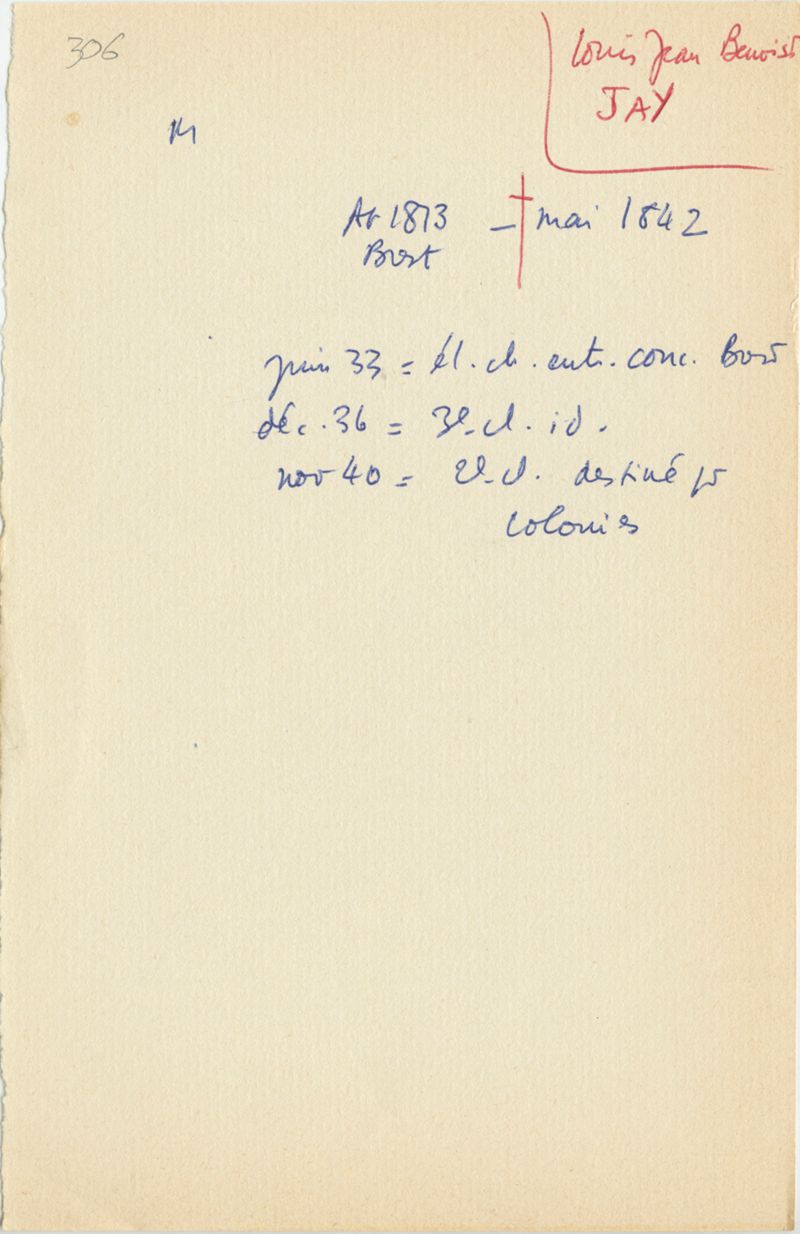 306
Louis Jean Benoist
JAY
M
Av 1813 - † mai 1842
Brest
juin 33 = él. ch. entr. conc. Brest
déc. 36 = 3e cl. id.
nov 40 = 2e cl. destiné pr
colonies